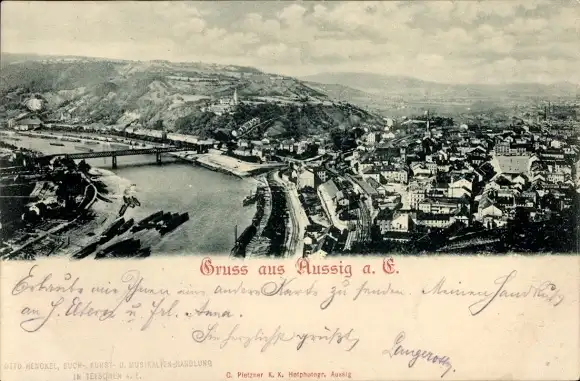 Gruss aus Aussig a. E.
Erlaube mir Ihnen eine andere Karte zu senden. Meinen Handkuß
an H. Eltern u. Frl. Anna.
Sie herzlichst grüßt
OTTO HENCKEL, BUCH-, KUNST- U. MUSIKALIEN-HANDLUNG
IN TETSCHEN a. E.
C. Pietzner K. K. Hofphotogr. Aussig